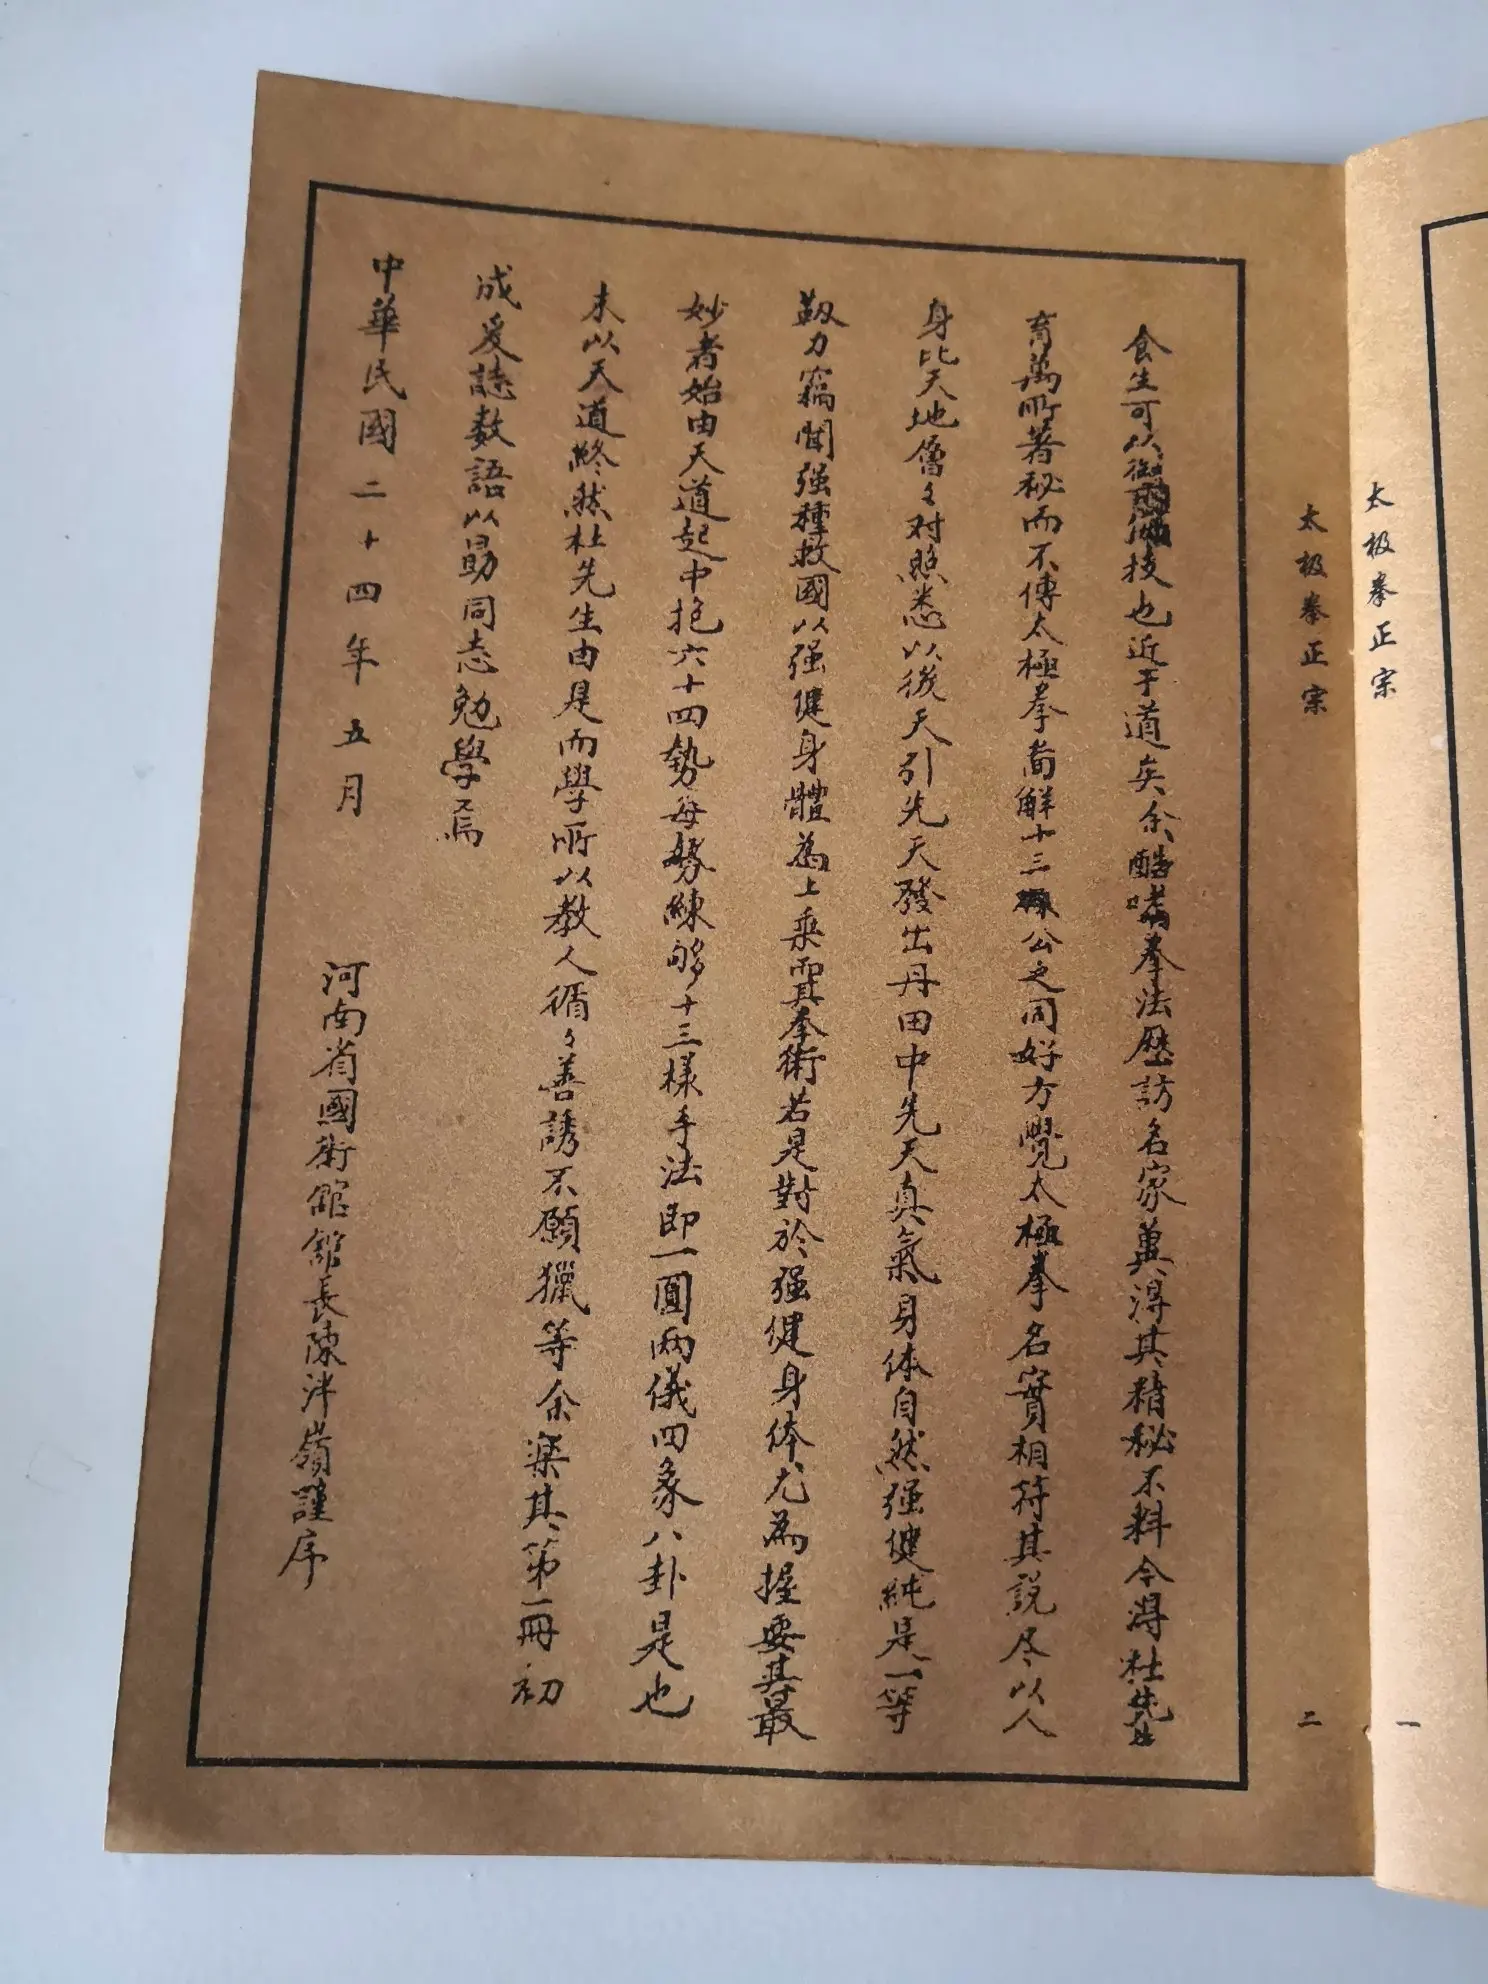 太极拳正宗
一
太极拳正宗
二
食生可以御技也近于道矣余酷嗜拳法歷訪名家冀得其精秘不料今得杜先生
育萬所著秘而不傳太極拳啚解十三公之同好方覺太極拳名實相符其說尽以人
身比天地層々对照悉以後天引先天發出丹田中先天真氣身体自然强健純是一等
靱力竊聞强種救國以强健身體為上乘實拳術若是對於强健身体尤為握要其最
妙者始由天道起中抱六十四勢每勢練够十三樣手法即一圓两儀四象八卦是也
末以天道終然杜先生由是而學所以教人循々善誘不願獵等余樂其第一冊初
成爰誌数語以勗同志勉學焉
中華民國二十四年五月
河南省國術館館長陳泮嶺謹序